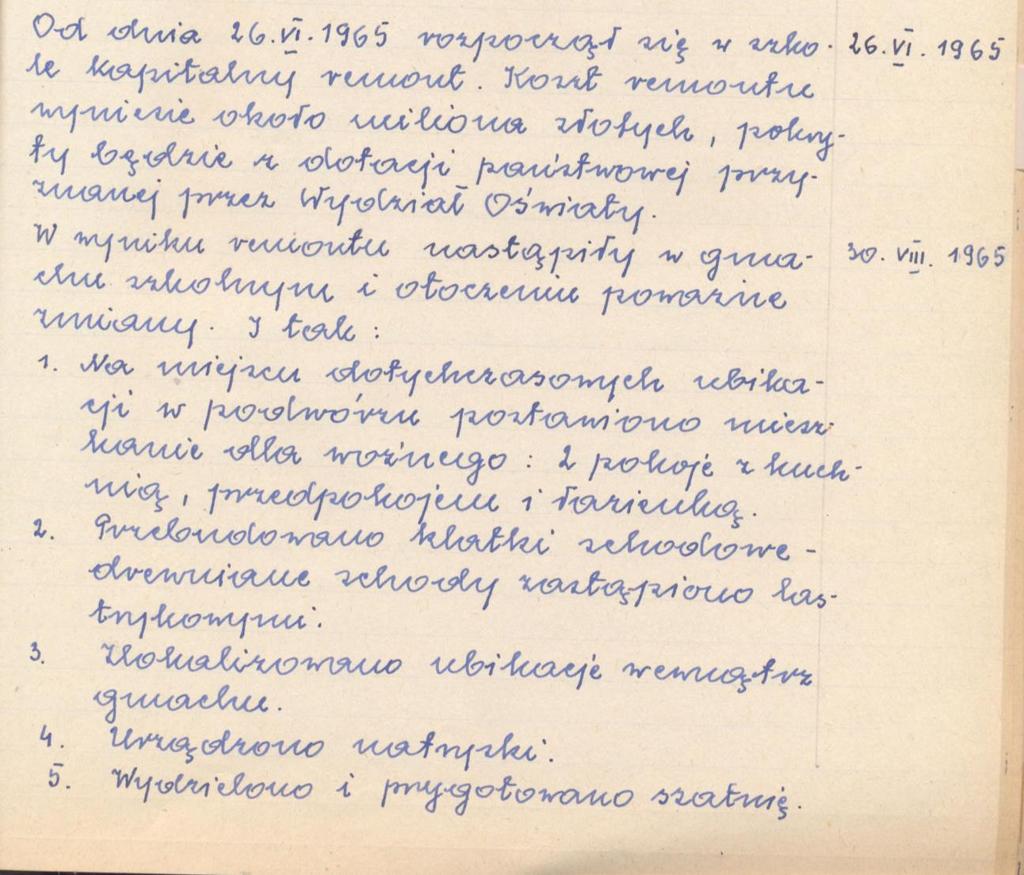 Od dnia 26.VI.1965 rozpoczął się w szko- 26.VI.1965
le kapitalny remont. Koszt remontu
wyniesie około miliona złotych, pokry-
ty będzie z dotacji państwowej przy-
znanej przez Wydział Oświaty.
W wyniku remontu nastąpiły w gma- 30.VIII.1965
chu szkolnym i otoczeniu poważne
zmiany. I tak:
1. Na miejscu dotychczasowych ubika-
cji w podwórzu postawiono miesz-
kanie dla woźnego: 2 pokoje z kuch-
nią, przedpokojem i łazienką.
2. Przebudowano klatki schodowe -
drewniane schody zastąpiono las-
trykowymi.
3. Zlokalizowano ubikacje wewnątrz
gmachu.
4. Urządzono natryski.
5. Wydzielono i przygotowano szatnię.